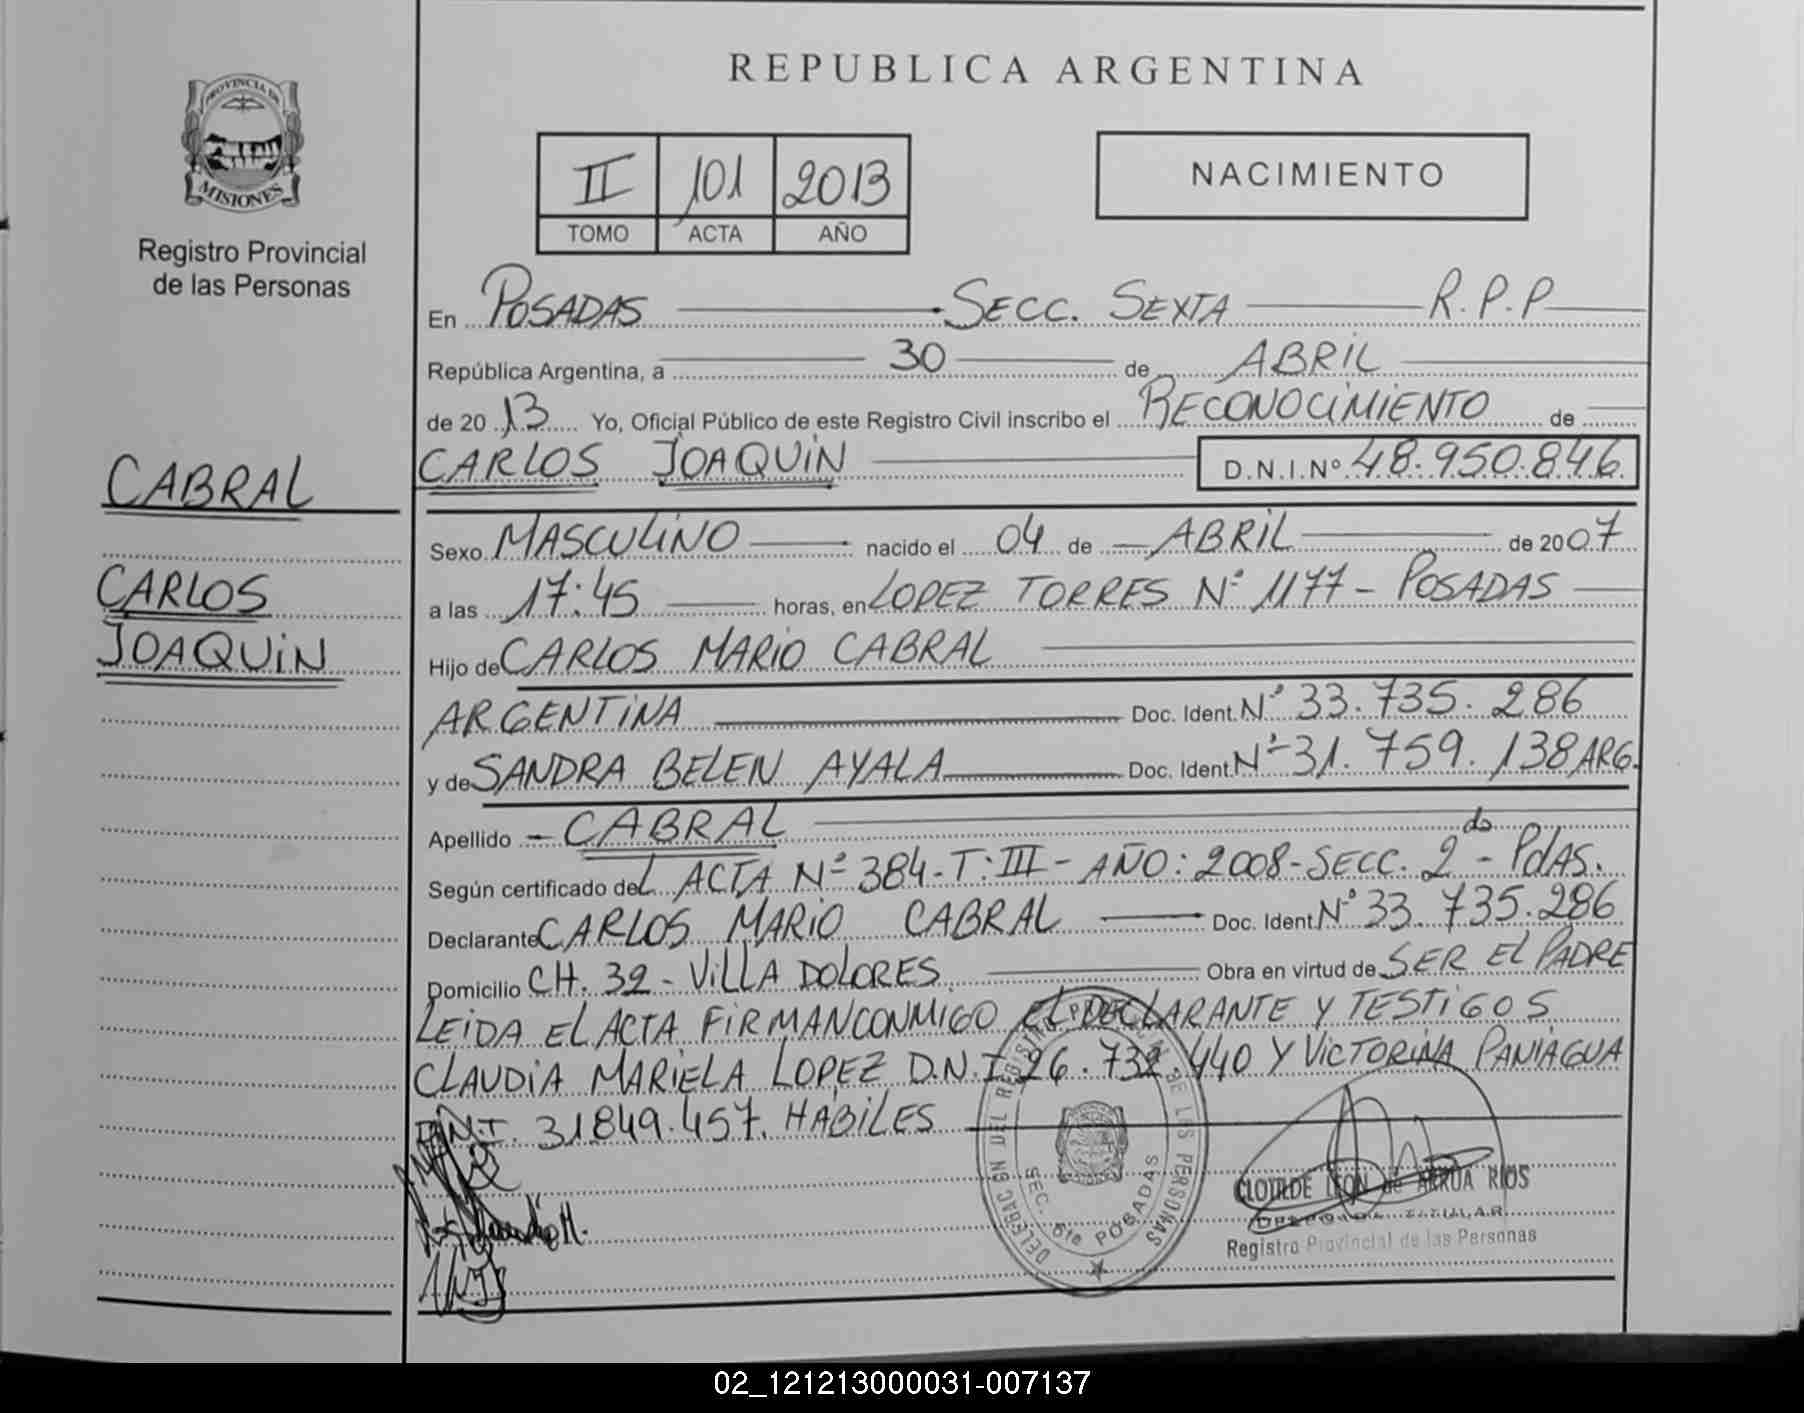 REPUBLICA ARGENTINA
PROVINCIA DE
MISIONES
Registro Provincial
de las Personas
II 101 2013
TOMO ACTA AÑO
NACIMIENTO
En POSADAS SECC. SEXTA R.P.P
República Argentina, a 30 de ABRIL
de 2013 Yo, Oficial Público de este Registro Civil inscribo el RECONOCIMIENTO de
CARLOS JOAQUIN D.N.I.Nº 48.950.846
CABRAL
CARLOS
JOAQUIN
Sexo MASCULINO nacido el 04 de ABRIL de 2007
a las 17:45 horas, en LOPEZ TORRES Nº 1177 - POSADAS
Hijo de CARLOS MARIO CABRAL
ARGENTINA Doc. Ident. Nº 33.735.286
y de SANDRA BELEN AYALA Doc. Ident. Nº 31.759.138 ARG.
Apellido CABRAL
Según certificado del ACTA Nº 384-T:III-AÑO:2008-SECC. 2da - Pdas.
Declarante CARLOS MARIO CABRAL Doc. Ident. Nº 33.735.286
Domicilio CH. 32 - VILLA DOLORES Obra en virtud de SER EL PADRE
LEIDA EL ACTA FIRMAN CONMIGO EL DECLARANTE Y TESTIGOS
CLAUDIA MARIELA LOPEZ D.N.I. 26.732.440 Y VICTORINA PANIAGUA
D.N.I. 31849.457. HABILES
SEC. 6ta POSADAS
CLOTILDE LEON de ARRUA RIOS
TITULAR
Registro Provincial de las Personas
02_121213000031-007137